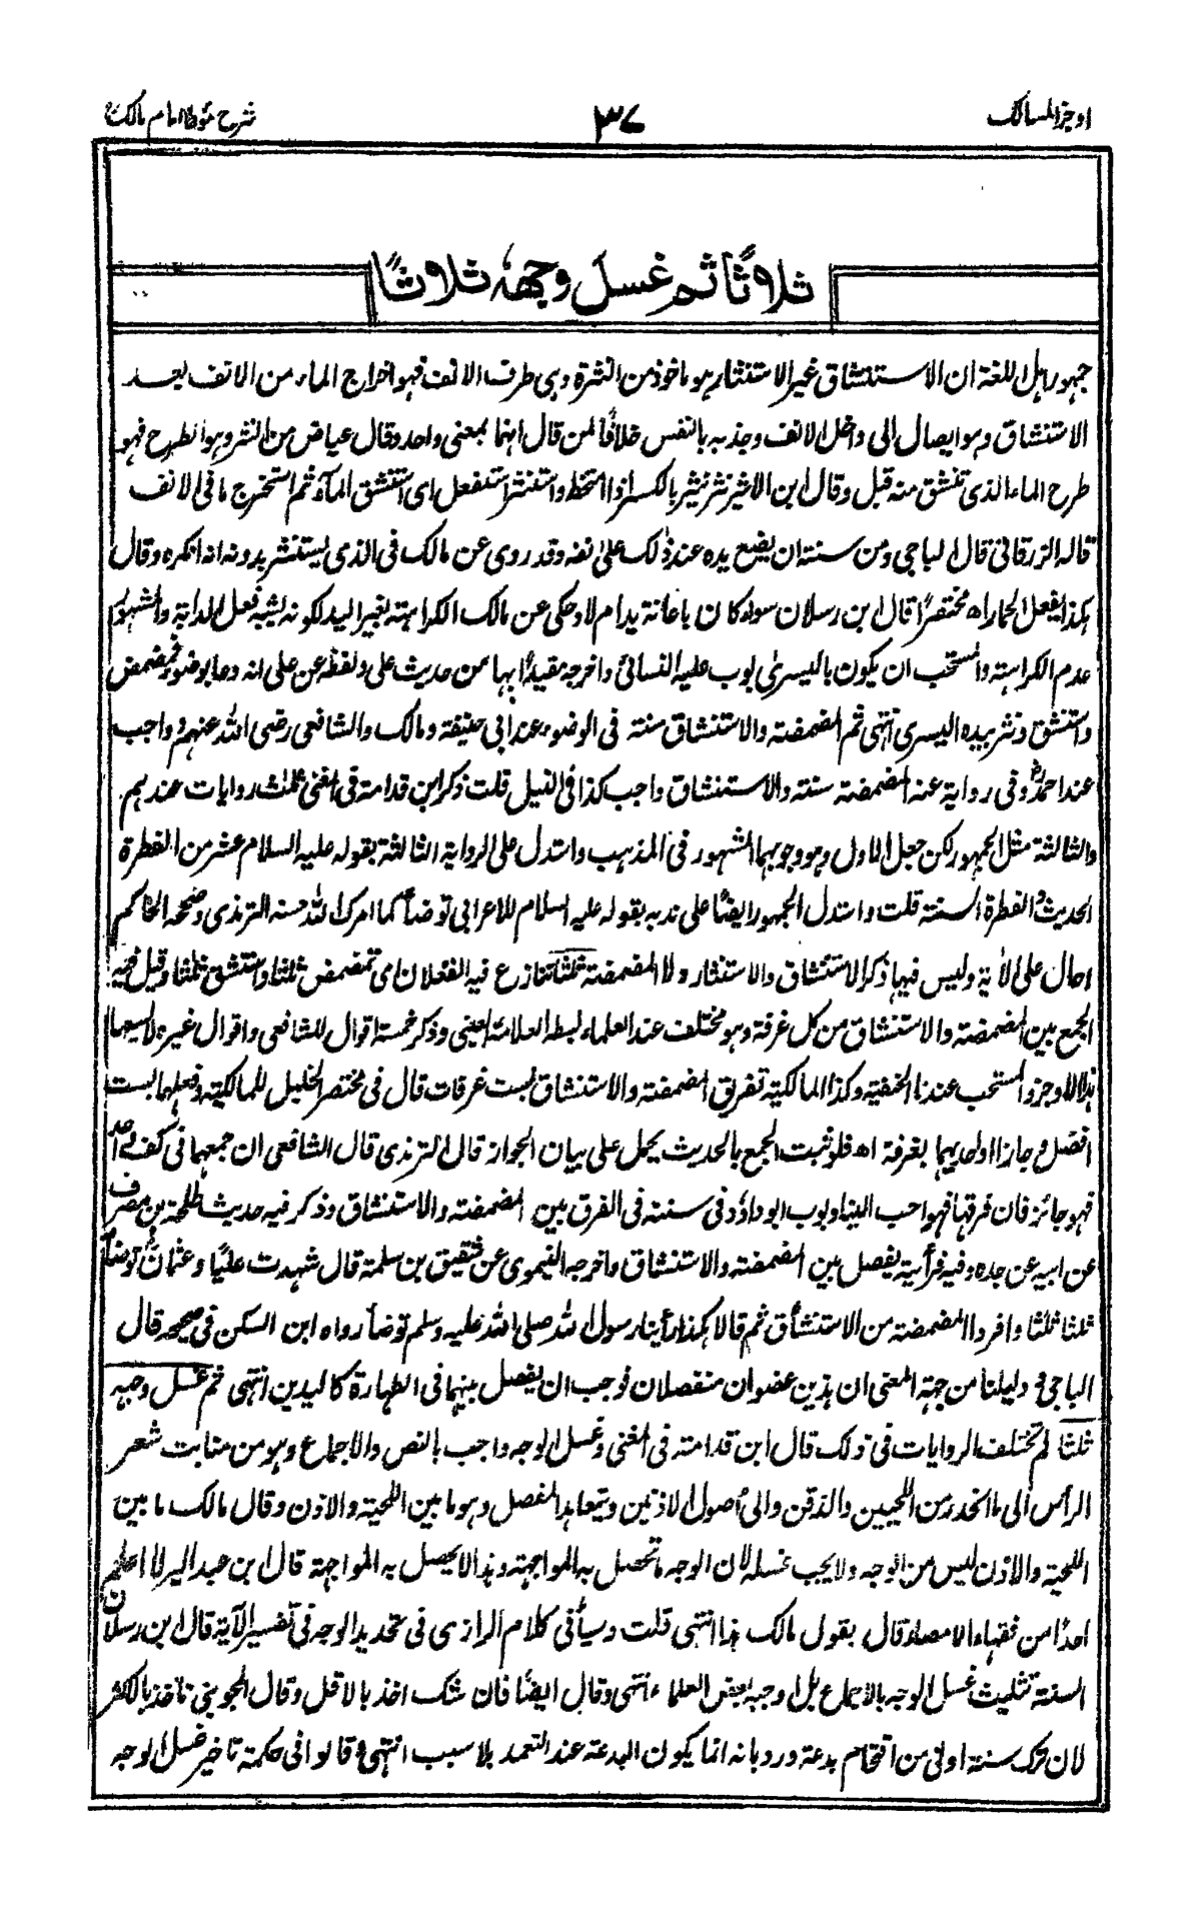 اوجز المسالك
٣٧
شرح موطا امام مالك
ثلاثًا ثم غسل وجهه ثلاثًا
جمهور اهل اللغة ان الاستنشاق غير الاستنثار هو ماخوذ من النثرة وهى طرف الانف فهو اخراج الماء من الانف بعد
الاستنشاق وهو ايصال الى داخل الانف وجذبه بالنفس خلافًا لمن قال انهما بمعنى واحد وقال عياض من النثر وهو الطرح فهو
طرح الماء الذى تنشق منه قبل وقال ابن الاثير نثر ينثر بالكسر اذا امتخط واستنثر استفعل اى استنشق الماء ثم استخرج ما فى الانف
قاله الزرقانى قال الباجى ومن سنته ان يضع يده عند ذلك على انفه وقد روى عن مالك فى الذى يستنثر بدونه انه انكره وقال
هكذا يفعل الحمار اه مختصرًا قال ابن رسلان سواء كان باعانة يد ام لا وحكى عن مالك الكراهته بغير اليد لكونه يشبه فعل الدابة والمشهور
عدم الكراهته والمستحب ان يكون باليسرى بوب عليه النسائى واخرجه مقيدًا بها من حديث على ولفظه عن على انه دعا بوضوء فمضمض
واستنشق ونثر بيده اليسرى انتهى ثم المضمضة والاستنشاق سنة فى الوضوء عند ابى حنيفة ومالك والشافعى رضى الله عنهم وواجب
عند احمد وفى رواية عنه المضمضة سنة والاستنشاق واجب كذا فى النيل قلت ذكر ابن قدامة فى المغنى ثلث روايات عندهم
والثالثة مثل الجمهور لكن جعل الاول وهو وجوبهما المشهور فى المذهب واستدل على الرواية الثالثة بقوله عليه السلام عشر من الفطرة
الحديث والفطرة السنة قلت واستدل الجمهور ايضًا على ندبه بقوله عليه السلام للاعرابى توضأ كما امرك الله حسنه الترمذى وصححه الحاكم
احال على الأية وليس فيها ذكر الاستنشاق والاستنثار ولا المضمضة ثلثا تنازع فيه الفعلان اى تمضمض ثلثا واستنشق ثلثا وقيل فيه
الجمع بين المضمضة والاستنشاق من كل غرفة وهو مختلف عند العلماء بسطه العلامة العينى وذكر خمسة اقوال للشافعى واقوال غيره لا يسعها
هذا الاوجز والمستحب عندنا الحنفية وكذا المالكية تفريق المضمضة والاستنشاق بست غرفات قال فى مختصر الخليل للمالكية وفعلهما بست
افضل وجازا او احديهما بغرفة اه فلو ثبت الجمع بالحديث يحمل على بيان الجواز قال الترمذى قال الشافعى ان جمعهما فى كف واحد
فهو جائز فان فرقهما فهو احب الينا وبوب ابو داؤد فى سننه فى الفرق بين المضمضة والاستنشاق وذكر فيه حديث طلحة بن مصرف
عن ابيه عن جده وفيه فرأيته يفصل بين المضمضة والاستنشاق واخرجه النيموى عن شقيق بن سلمة قال شهدت عليًا وعثمان توضأ
ثلثا ثلثا وافردا المضمضة من الاستنشاق ثم قالا هكذا رأينا رسول الله صلى الله عليه وسلم توضأ رواه ابن السكن فى صحيحه قال
الباجى ودليلنا من جهة المعنى ان هذين عضوان منفصلان فوجب ان يفصل بينهما فى الطهارة كاليدين انتهى ثم غسل وجهه
ثلثا لم تختلف الروايات فى ذلك قال ابن قدامة فى المغنى وغسل الوجه واجب بالنص والاجماع وهو من منابت شعر
الرأس الى ما انحدر من اللحيين والذقن والى اصول الاذنين ويتعاهد المفصل وهو ما بين اللحية والاذن وقال مالك ما بين
اللحية والاذن ليس من الوجه ولا يجب غسله لان الوجه ما تحصل به المواجهة وهذا لا يحصل به المواجهة قال ابن عبد البر لا اعلم
احدًا من فقهاء الامصار قال بقول مالك هذا انتهى قلت وسيأتى كلام الرازى فى تحديد الوجه فى تفسير الآية قال ابن رسلان
السنة تثليث غسل الوجه بالاجماع بل اوجبه بعض العلماء انتهى وقال ايضًا فان شك اخذ بالاقل وقال الجوينى تاخذ بالاكثر
لان ترك سنة اولى من اقتحام بدعة ورد بانه انما يكون البدعة عند التعمد بلا سبب انتهى وقالوا فى حكمة تاخير غسل الوجه